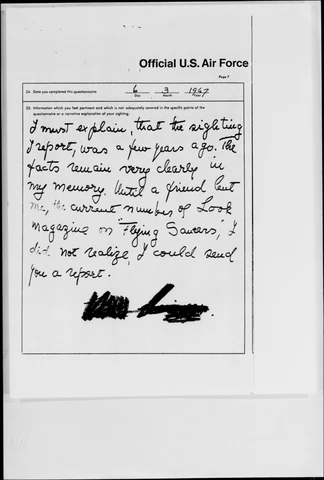 Official U.S. Air Force
Page 7
24 Date you completed this questionnaire: 6 3 1967
Day Month Year
25 Information which you feel pertinent and which is not adequately covered in the specific points of the
questionnaire or a narrative explanation of your sighting.
I must explain, that the sighting
I report, was a few years ago. The
facts remain very clearly in
my memory. Until a friend lent
me, the current number of Look
Magazine on "Flying Saucers," I
did not realize, I could send
you a report.